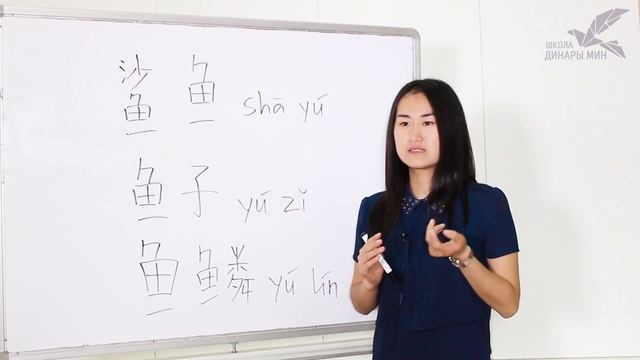 ШКОЛА
ДИНАРЫ МИН
鲨鱼 shā yú
鱼子 yú zǐ
鱼鳞 yú lín